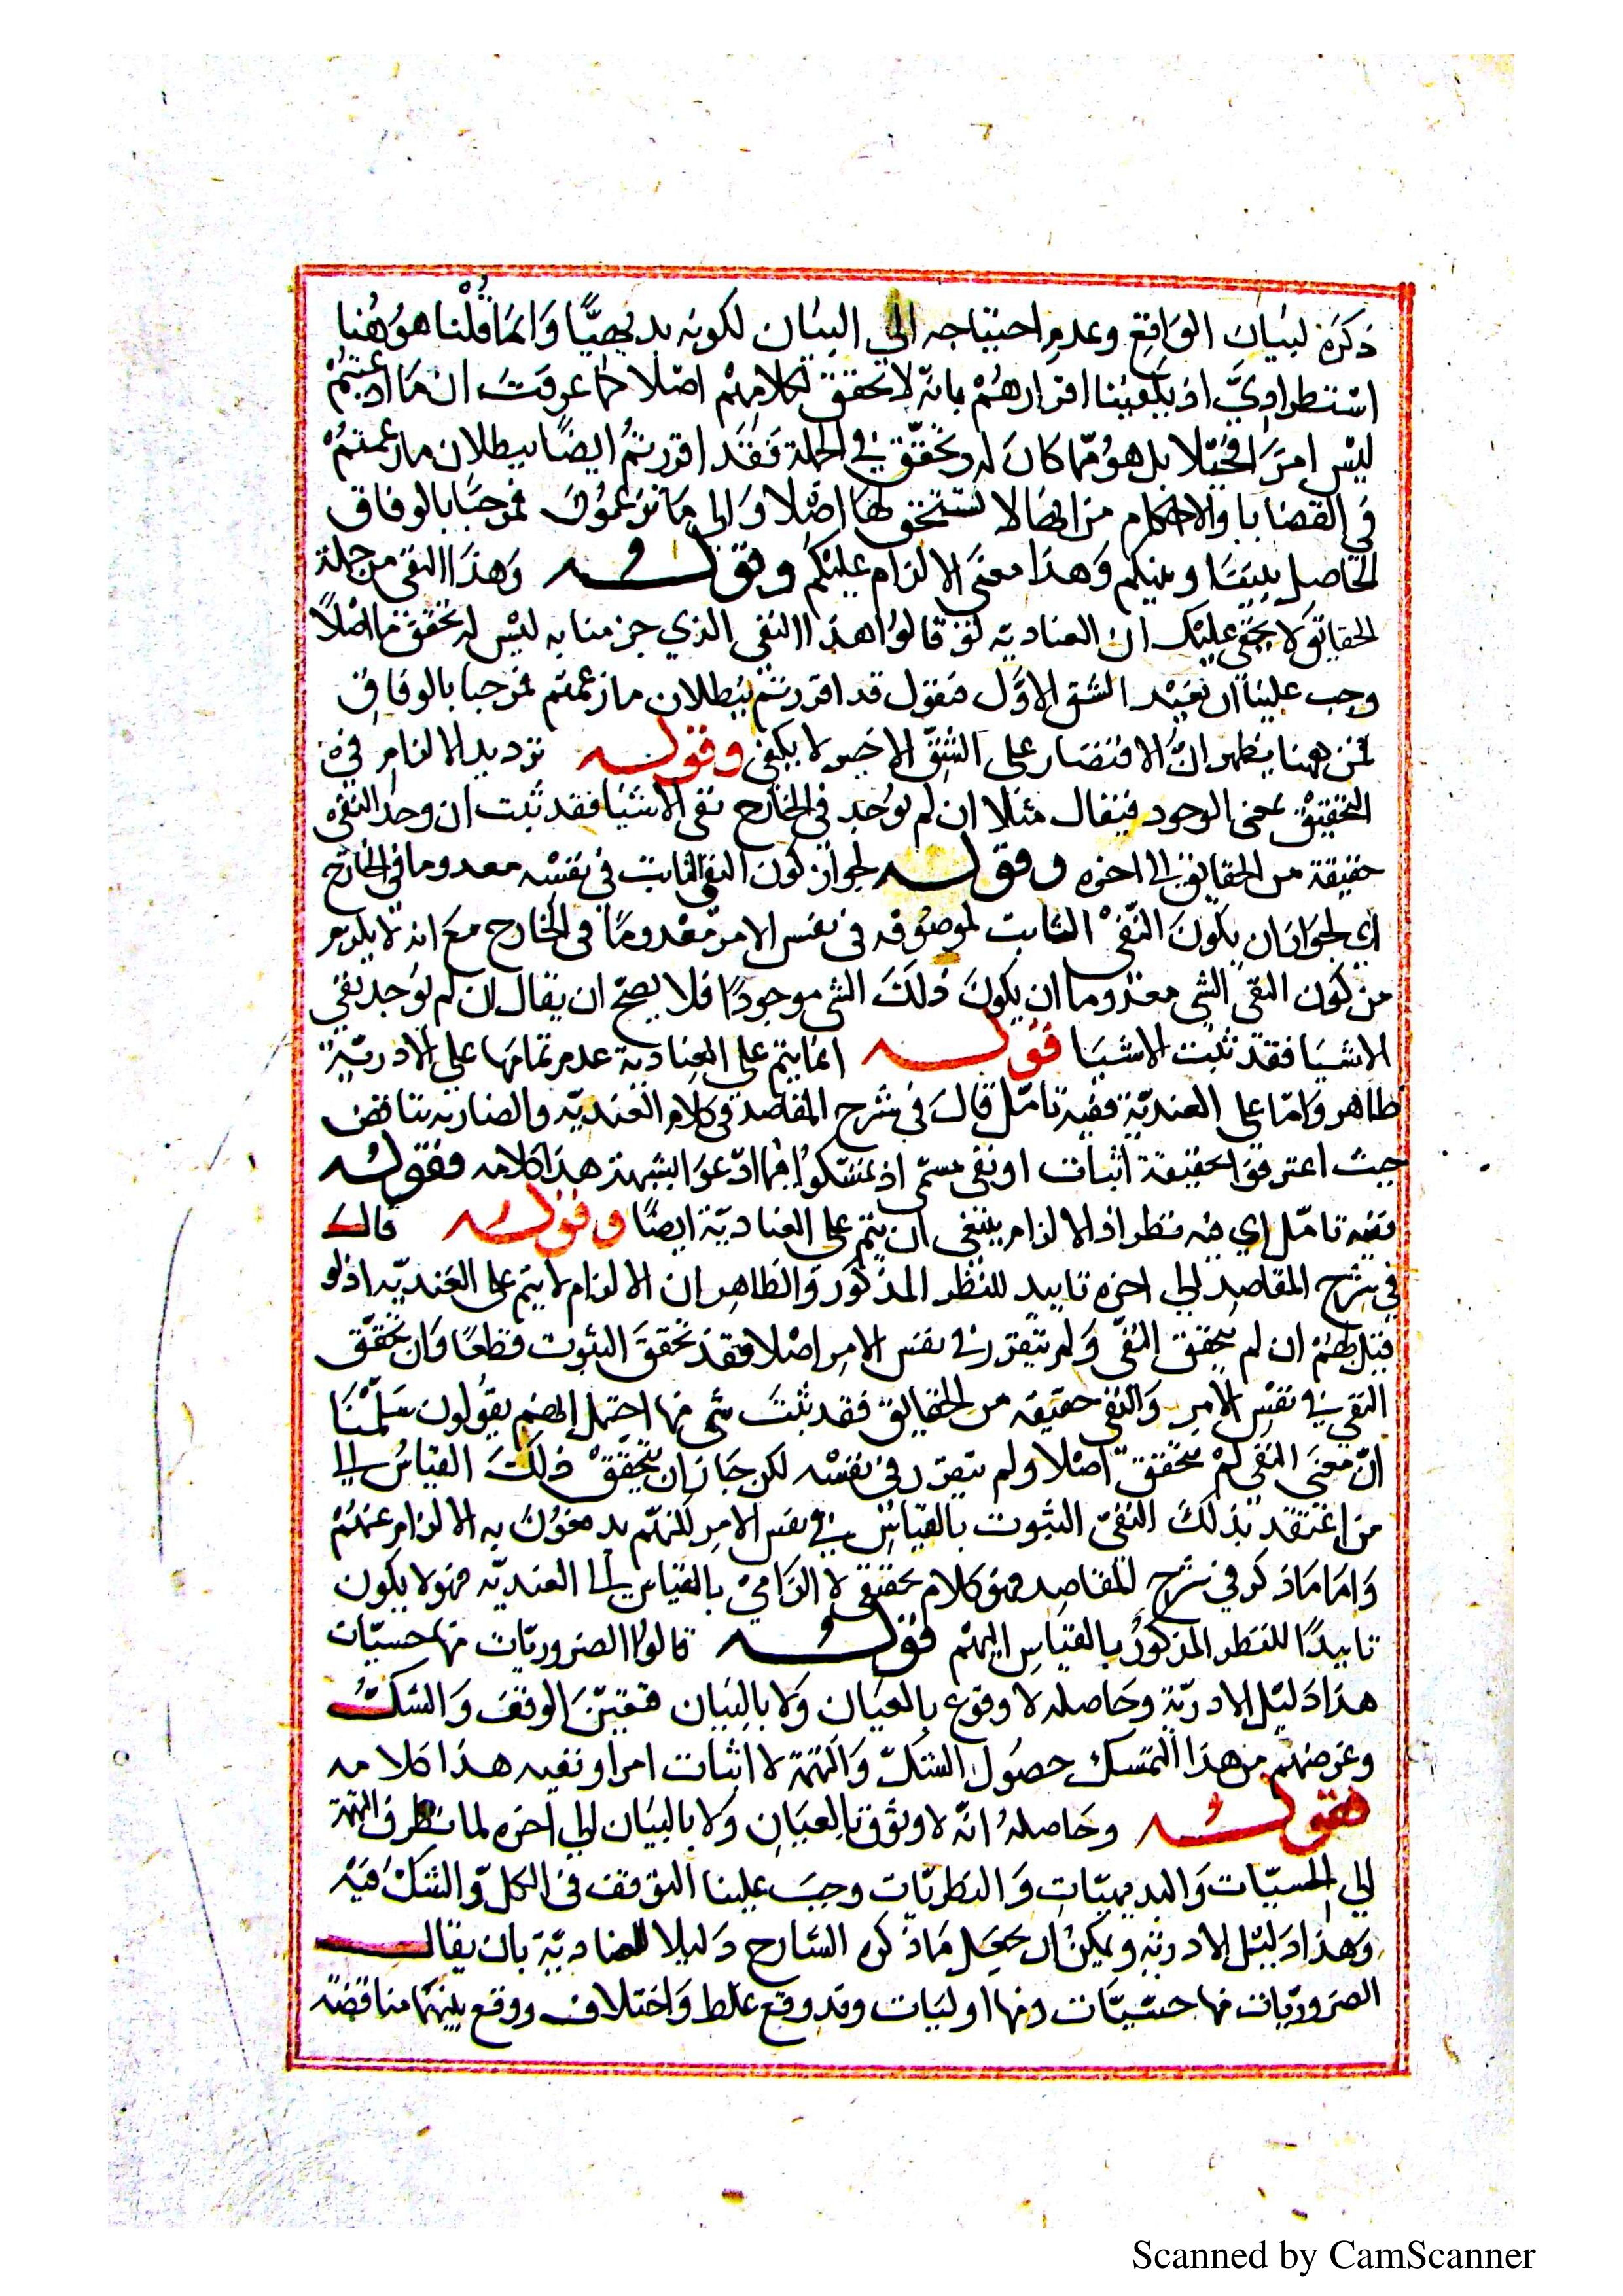 ذكره لبيان الواقع وعدم احتياجه الي البيان لكونه بديهيًّا وانما قلنا هو هنا
استطرادي اذ يكفينا اقرارهم بانه لا تحقق لكلامهم اصلا كما عرفت ان ما ادعيتم
ليس امرا مخيلا بل هو مما كان له تحقق في الجملة فقد اقررتم ايضًا ببطلان ما زعمتم
في القضايا والاحكام من انها لا تحقق لها اصلا والى ما تزعمون فمرحبا بالوفاق
الحاصل بيننا وبينكم وهذا معنى الالزام عليكم وقوله وهذا النفي من جملة
الحقايق لا يخفى عليك ان العنادية لو قالوا هذا النفي الذي جزمنا به ليس له تحقق ما اصلاً
وجب علينا ان نعيد الشق الاول فنقول قد اقررتم ببطلان ما زعمتم فمرحبا بالوفاق
فمن ههنا يظهر انّ الاقتصار على الشق الاخير لا يكفي وقوله ترديد الالزام في
التحقيق بمعنى الوجود فيقال مثلا ان لم يوجد في الخارج نفي الاشيا فقد ثبت ان وجد النفي
حقيقة من الحقايق الى اخره وقوله لجواز كون النفي الثابت في نفسه معدوما في الخارج
اي لجواز ان يكون النفي الثابت لموصوفه في نفس الامر معدومًا في الخارج مع انه لا يلزم
من كون النفي الشي معدوما ان يكون ذلك الشي موجودًا فلا يصح ان يقال ان لم يوجد نفي
الاشيا فقد ثبت الاشيا قوله انما يتم على العنادية عدم تمامها على اللاادرية
ظاهر واما على العندية ففيه تامل قال في شرح المقاصد في كلام العندية والعنادية تناقض
حيث اعترفوا بحقيقة اثبات او نفي سيما اذ تمسكوا فيما ادعوا بشبهة هذا كلامه فقوله
ففيه تامل اي فيه نظر اذ الالزام ينبغي ان يتم على العنادية ايضًا وقوله قال
في شرح المقاصد الي اخره تاييد للنظر المذكور والظاهر ان الالزام لا يتم على العندية اذ لو
قيل لهم ان لم يتحقق النفي ولم يتقرر في نفس الامر اصلا فقد تحقق الثبوت قطعًا وان تحقق
النفي في نفس الامر والنفي حقيقه من الحقايق فقد ثبت شي منها احتمل انهم يقولون سلّمنا
انّ معنى النفي لم يتحقق اصلا ولم يتقرر في نفسه لكن جاز ان يتحقق ذلك القياس الى
من اعتقد بذلك النفي الثبوت بالقياس في نفس الامر لكنهم يدفعون به الالزام عنهم
واما ما ذكر في شرح المقاصد فهو كلام تحقيقي لا الزامي بالقياس الى العنديّه فهو لا يكون
تاييدًا للنظر المذكور بالقياس اليهم قوله قالوا الضروريات منها حسيّات
هذا دليل اللاادرية وحاصله لا وقوع بالعيان ولا بالبيان فتعيّن الوقف والشكّ
وغرضهم من هذا التمسك حصول الشك والتهمة لا اثبات امر او نفيه هذا كلامه
فقوله وحاصله انّه لا وثوق بالعيان ولا بالبيان الي اخره لما تطرق التهمة
الي الحسيّات والبديهيات والنظريّات وجب علينا التوقف في الكل والشك فيه
وهذا دليل اللاادرية ويمكن ان يجعل ما ذكره الشارح دليلا للعنادية بان يقال
الضروريّات منها حسيّات ومنها اوليات وقد وقع غلط واختلاف ووقع بينهما مناقضة
Scanned by CamScanner